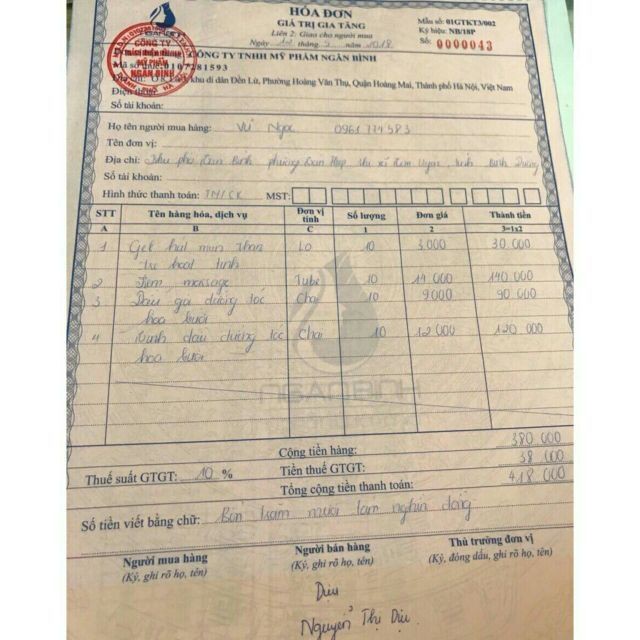 HÓA ĐƠN
GIÁ TRỊ GIA TĂNG
Liên 2: Giao cho người mua
Ngày tháng 2018
Mẫu số: 01GTKT3/002
Ký hiệu: NB/18P
Số: 0000043
CÔNG TY
MỸ PHẨM
NGÂN BÌNH
CÔNG TY TNHH MỸ PHẨM NGÂN BÌNH
Mã số thuế: 0107281593
Địa chỉ: khu di dân Đền Lừ, Phường Hoàng Văn Thụ, Quận Hoàng Mai, Thành phố Hà Nội, Việt Nam
Điện thoại:
Số tài khoản:
Họ tên người mua hàng: Vũ Ngọc 0961774583
Tên đơn vị:
Địa chỉ: Khu phố Bình phường thị xã Uyên, tỉnh Bình Dương
Số tài khoản:
Hình thức thanh toán: TM/CK MST:
STT Tên hàng hóa, dịch vụ Đơn vị tính Số lượng Đơn giá Thành tiền
A B C 1 2 3=1x2
1 Gel hút mụn than Lọ 10 3.000 30 000
tre hoạt tính
2 massage Tube 10 14 000 140 000
3 Dầu gội dưỡng tóc Chai 10 9.000 90 000
hoa bưởi
4 Tinh dầu dưỡng tóc Chai 10 12 000 120 000
hoa bưởi
NGANBINH
Cộng tiền hàng: 380 000
Thuế suất GTGT: 10 % Tiền thuế GTGT: 38 000
Tổng cộng tiền thanh toán: 418 000
Số tiền viết bằng chữ: Bốn trăm mười tám nghìn đồng
Người mua hàng Người bán hàng Thủ trưởng đơn vị
(Ký, ghi rõ họ, tên) (Ký, ghi rõ họ, tên) (Ký, đóng dấu, ghi rõ họ, tên)
Dịu
Nguyễn Thị Dịu